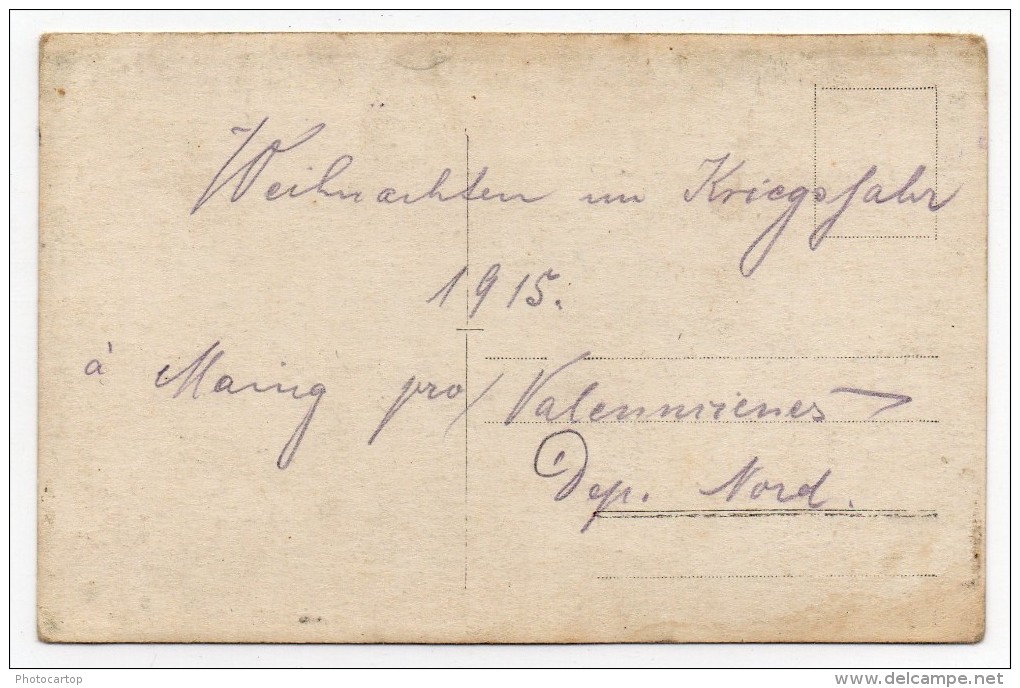 Weihnachten im Kriegsjahr
1915.
à Maing pro/ Valenciennes
Dep. Nord.
Photocartop
www.delcampe.net